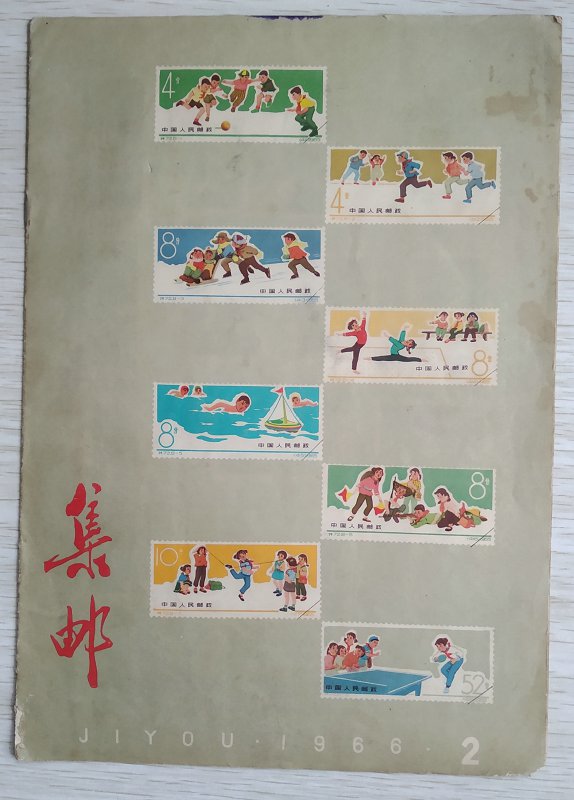 4分
中国人民邮政
4分
中国人民邮政
8分
中国人民邮政
8分
中国人民邮政
8分
中国人民邮政
8分
中国人民邮政
10分
中国人民邮政
中国人民邮政
52分
集邮
JIYOU·1966·2